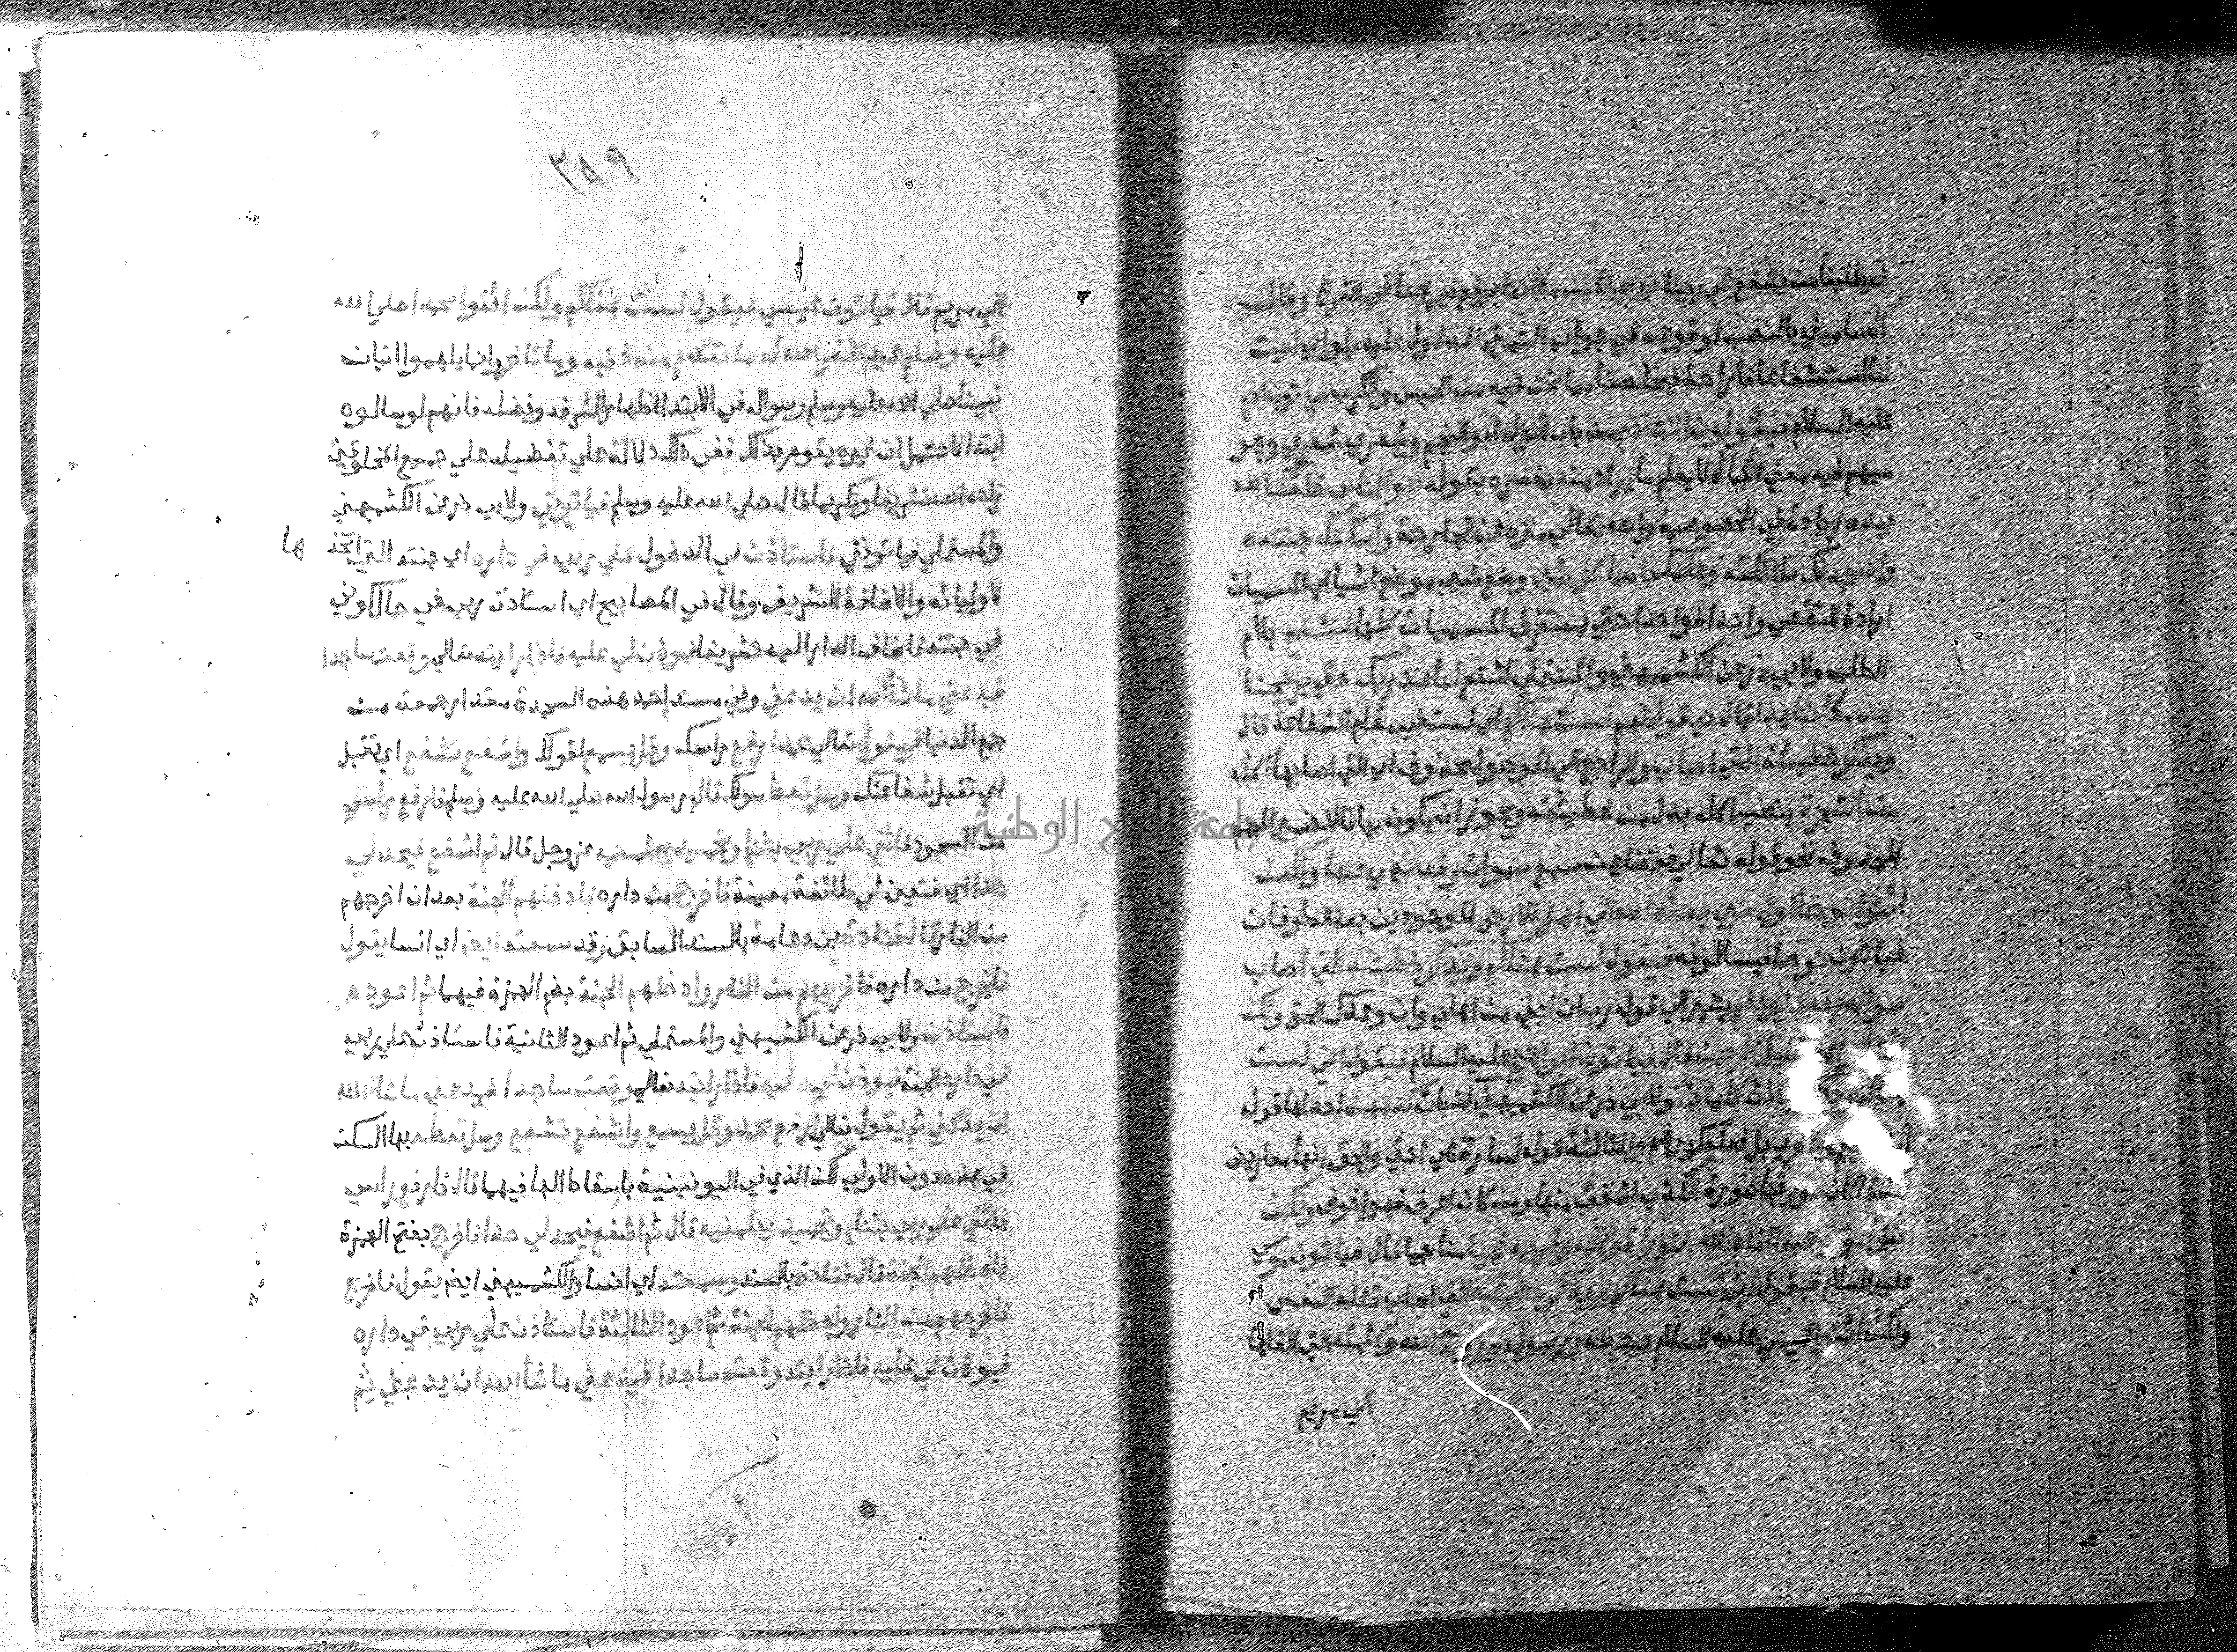 لو طلبنا من يشفع الي ربنا فيريحنا من مكاننا برفع فيريحنا في الفرع وقال
الدماميني بالنصب لوقوعه في جواب التمني المدلول عليه بلو اي ليت
لنا استشفاعا فاراحة فيخلصنا مما نحن فيه من الحبس والكرب فياتون ادم
عليه السلام فيقولون انت ادم من باب قوله ابو النجم وشعري شعري وهو
مبهم فيه معني الكمال لا يعلم ما يراد منه ففسره بقوله ابو الناس خلقك الله
بيده زيادة في الخصوصية والله تعالي منزه عن الجارحة واسكنك جنته
واسجد لك ملائكته وعلمك اسما كل شي وضع شي موضع اشيا اي المسميات
ارادة التقصي واحدا فواحدا حتي يستغرق المسميات كلها لتشفع بلام
الطلب ولابي ذر عن الكشميهني والمستملي اشفع لنا عند ربك حتي يريحنا
من مكاننا هذا قال فيقول لهم لست هناكم اي لست في مقام الشفاعة قال
ويذكر خطيئته التي اصاب والراجع الي الموصول محذوف اي التي اصابها اكله
من الشجرة بنصب اكله بدل من خطيئته ويجوز ان يكون بيانا للضمير المبهم
المحذوف نحو قوله تعالي فقضاهن سبع سموات وقد نهي عنها ولكن
ائتوا نوحا اول نبي بعثه الله الي اهل الارض الموجودين بعد الطوفان
فياتون نوحا فيسالونه فيقول لست هناكم ويذكر خطيئته التي اصاب
سواله ربه بغير علم يشير الي قوله رب ان ابني من اهلي وان وعدك الحق ولكن
ائتوا خليل الرحمن قال فياتون ابراهيم عليه السلام فيقول اني لست
هناكم ويذكر ثلاث كلمات ولابي ذر عن الكشميهني كذبات كذبهن احداها قوله
اني سقيم والاخري بل فعله كبيرهم والثالثة قوله لسارة هي اختي والحق انها معاريض
لكن لما كان صورتها صورة الكذب اشفق منها ومن كان اعرف فهو اخوف ولكن
ائتوا موسي عبدا اتاه الله التوراة وكلمه وقربه نجيا مناجيا قال فياتون موسي
عليه السلام فيقول اني لست هناكم ويذكر خطيئته التي اصاب قتله النفس
ولكن ائتوا عيسي عليه السلام عبد الله ورسوله وروح الله وكلمته التي القاها
الي مريم
٣٥٩
الي مريم قال فياتون عيسي فيقول لست هناكم ولكن ائتوا محمدا صلي الله
عليه وسلم عبدا غفر الله له ما تقدم من ذنبه وما تاخر وانما يلهموا اتيان
نبينا صلي الله عليه وسلم وسواله في الابتدا اظهارا لشرفه وفضله فانهم لو سالوه
ابتدا لاحتمل ان غيره يقوم بذلك ففي ذلك دلالة علي تفضيله علي جميع المخلوقين
زاده الله تشريفا وتكريما قال صلي الله عليه وسلم فياتوني ولابي ذر عن الكشميهني
والمستملي فياتونني فاستاذن في الدخول علي ربي في داره اي جنته التي اتخذ ها
لاوليائه والاضافة للتشريف وقال في المصابيح اي استاذن ربي في حال كوني
في جنته فاضاف الدار اليه تشريفا فيوذن لي عليه فاذا رايته تعالي وقعت ساجدا
فيدعني ما شا الله ان يدعني وفي مسند احمد هذه السجدة مقدار جمعة من
جمع الدنيا فيقول تعالي محمد ارفع راسك وقل يسمع لقولك واشفع تشفع اي تقبل
اي تقبل شفاعتك وسل تعط سولك قال رسول الله صلي الله عليه وسلم فارفع راسي
من السجود فاثني علي ربي بثنا وتحميد يعلمنيه عز وجل قال ثم اشفع فيحد لي
حدا اي فتعين لي طائفة معينة فاخرج من داره فادخلهم الجنة بعد ان اخرجهم
من النار قال قتادة بن دعامة بالسند السابق وقد سمعته ايضا اي انسا يقول
فاخرج من داره فاخرجهم من النار وادخلهم الجنة بضم الهمزة فيهما ثم اعود
فاستاذن ولابي ذر عن الكشميهني والمستملي ثم اعود الثانية فاستاذن علي ربي
في داره الجنة فيوذن لي عليه فاذا رايته تعالي وقعت ساجدا فيدعني ما شا الله
ان يدعني ثم يقول تعالي ارفع محمد وقل يسمع واشفع تشفع وسل تعطه بها السكت
في هذه دون الاولي لكن الذي في اليونينية باسقاط الها فيهما قال فارفع راسي
فاثني علي ربي بثنا وتحميد يعلمنيه قال ثم اشفع فيحد لي حدا فاخرج بفتح الهمزة
فادخلهم الجنة قال قتادة بالسند وسمعته اي انسا وللكشميهني ايضا يقول فاخرج
فاخرجهم من النار وادخلهم الجنة ثم اعود الثالثة فاستاذن علي ربي في داره
فيوذن لي عليه فاذا رايته وقعت ساجدا فيدعني ما شا الله ان يدعني ثم
جامعة النجاح الوطنية